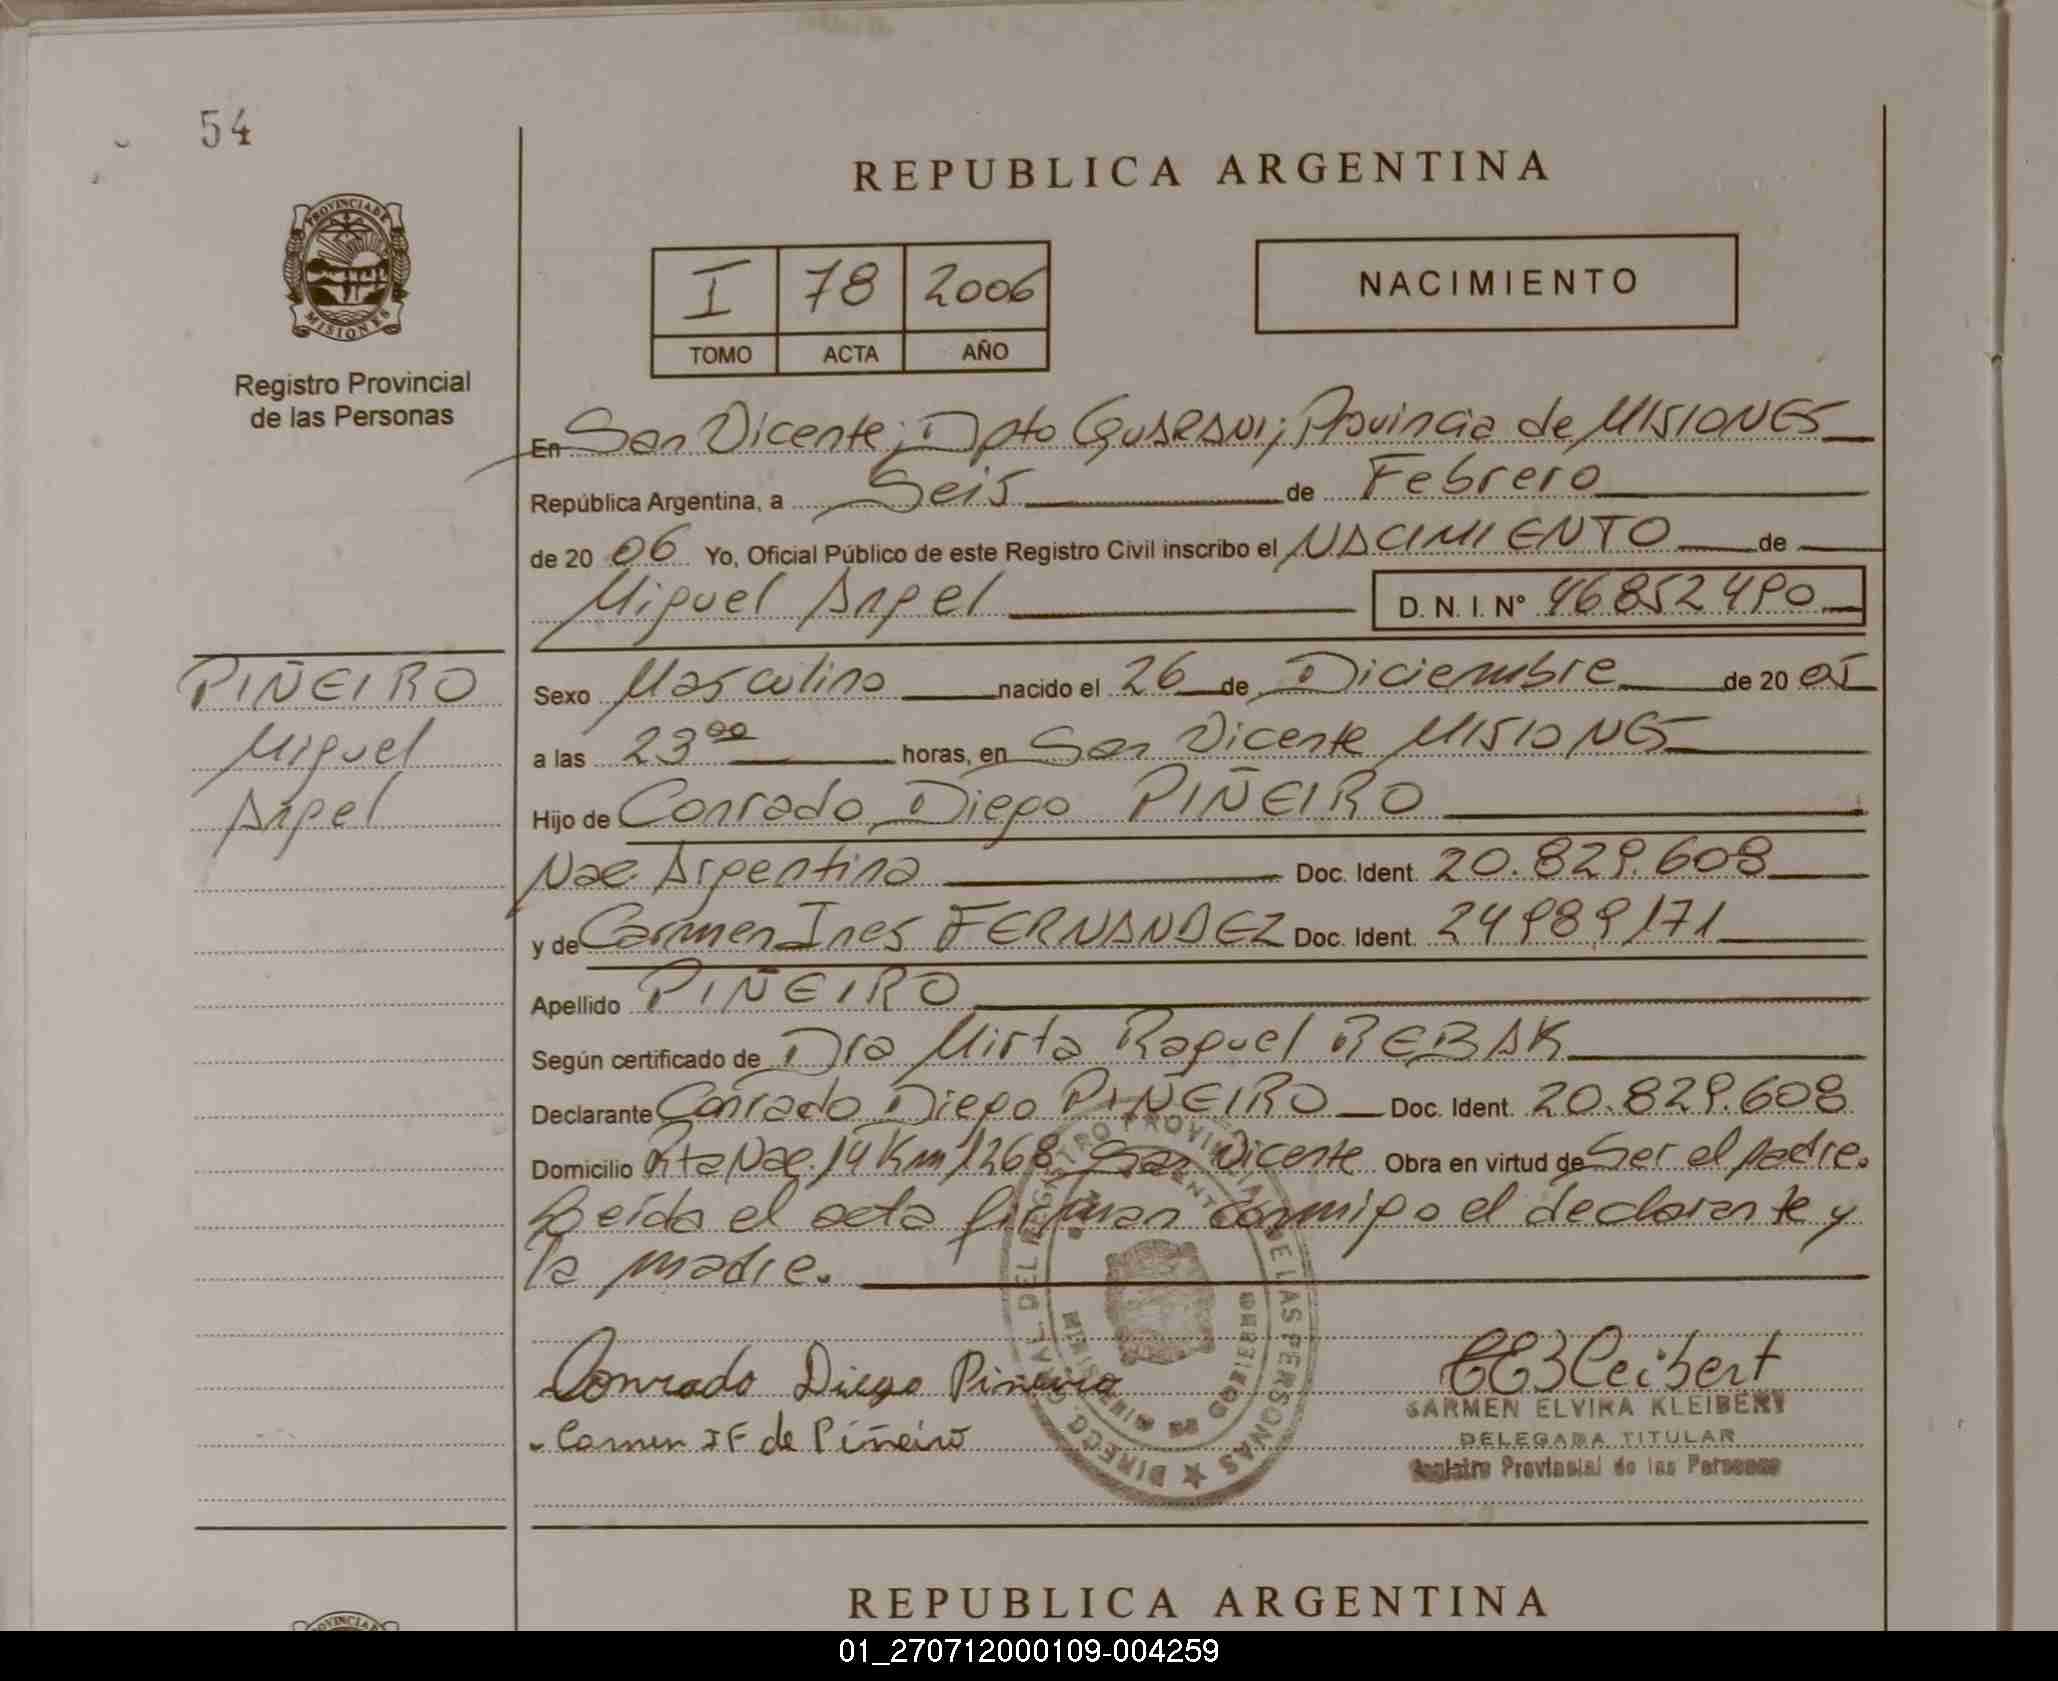 54
REPUBLICA ARGENTINA
PROVINCIA DE
MISIONES
Registro Provincial
de las Personas
I 78 2006
TOMO ACTA AÑO
NACIMIENTO
En San Vicente; Dpto Guarani; Provincia de MISIONES
República Argentina, a Seis de Febrero
de 20 06 Yo, Oficial Público de este Registro Civil inscribo el NACIMIENTO de
Miguel Angel D. N. I. Nº 46852490
PIÑEIRO
Miguel
Angel
Sexo Masculino nacido el 26 de Diciembre de 20 05
a las 23 00 horas, en San Vicente MISIONES
Hijo de Conrado Diego PIÑEIRO
Nac. Argentina Doc. Ident. 20.829.608
y de Carmen Ines FERNANDEZ Doc. Ident. 24989171
Apellido PIÑEIRO
Según certificado de Dra Mirta Raquel REBAK
Declarante Conrado Diego PIÑEIRO Doc. Ident. 20.829.608
Domicilio Rta Nac. 14 Km 1268 San Vicente Obra en virtud de Ser el padre.
Leída el acta firman conmigo el declarante y
la madre.
DEL REGISTRO PROVINCIAL DE LAS PERSONAS ★ DIRECC. GRAL.
MINISTERIO DE GOBIERNO
Conrado Diego Piñeiro
Carmen I F de Piñeiro
CEKleibert
CARMEN ELVIRA KLEIBERT
DELEGADA TITULAR
Registro Provincial de las Personas
REPUBLICA ARGENTINA
PROVINCIA
01_270712000109-004259